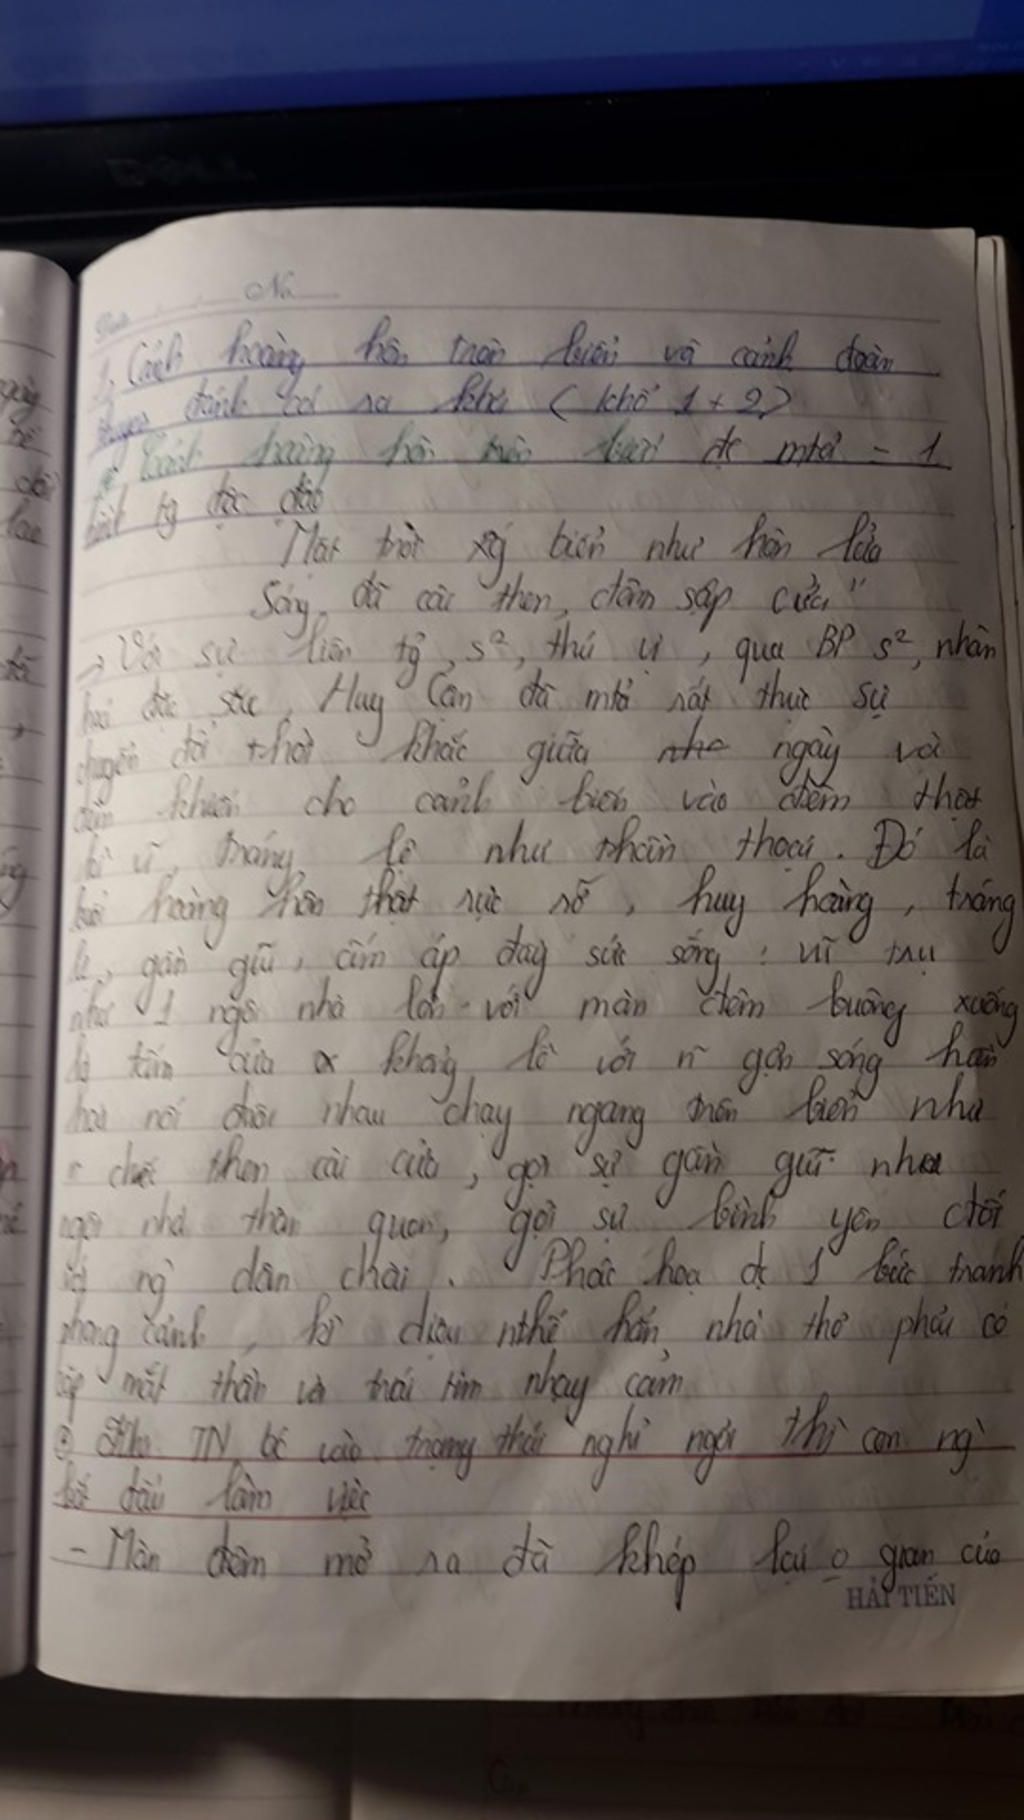 DELL
No
1, Cảnh hoàng hôn trên biển và cảnh đoàn
thuyền đánh cá ra khơi (khổ 1 + 2)
* Cảnh hoàng hôn trên biển đc mtả - 1
hình tg độc đáo
Mặt trời xg biển như hòn lửa
Sóng đã cài then, đêm sập cửa"
→ Với sự liên tg, s², thú vị, qua BP s², nhân
hoá đặc sắc, Huy Cận đã mtả rất thực sự
chuyển đổi thời khắc giữa ngày và
đêm khiến cho cảnh biển vào đêm thật
kì vĩ, tráng lệ như thần thoại. Đó là
buổi hoàng hôn thật rực rỡ, huy hoàng, tráng
lệ, gần gũi, ấm áp đầy sức sống: vũ trụ
như 1 ngôi nhà lớn với màn đêm buông xuống
là tấm cửa khổng lồ với n~ gợn sóng
nối đuôi nhau chạy ngang trên biển như
n~ chiếc then cài cửa, gợi sự gần gũi như
ngôi nhà thân quen, gợi sự bình yên đối
với ng` dân chài. Phác hoạ đc 1 bức tranh
phong cảnh, kì diệu nthế hẳn nhà thơ phải có
cặp mắt thần và trái tim nhạy cảm
* Khi TN bc vào trạng thái nghỉ ngơi thì con ng`
bắt đầu làm việc
- Màn đêm mở ra đã khép lại o gian của
HẢI TIẾN